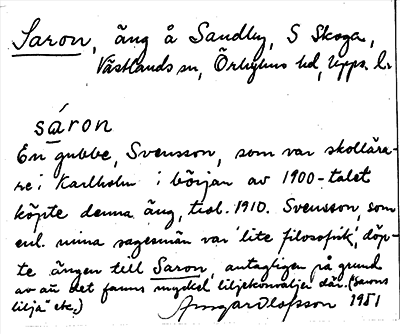 Saron, äng å Sandby, S Skoga,
Västlands sn, Örbyhus hd, Upps. l.
sáron
En gubbe, Svensson, som var skollära-
re i Karlholm i början av 1900-talet
köpte denna äng, trol. 1910. Svensson, som
enl. mina sagesmän var 'lite filosofisk', döp-
te ängen till Saron, antagligen på grund
av att det fanns mycket liljekonvaljer där. ("Sarons
lilja" etc.)
Olofsson 1951